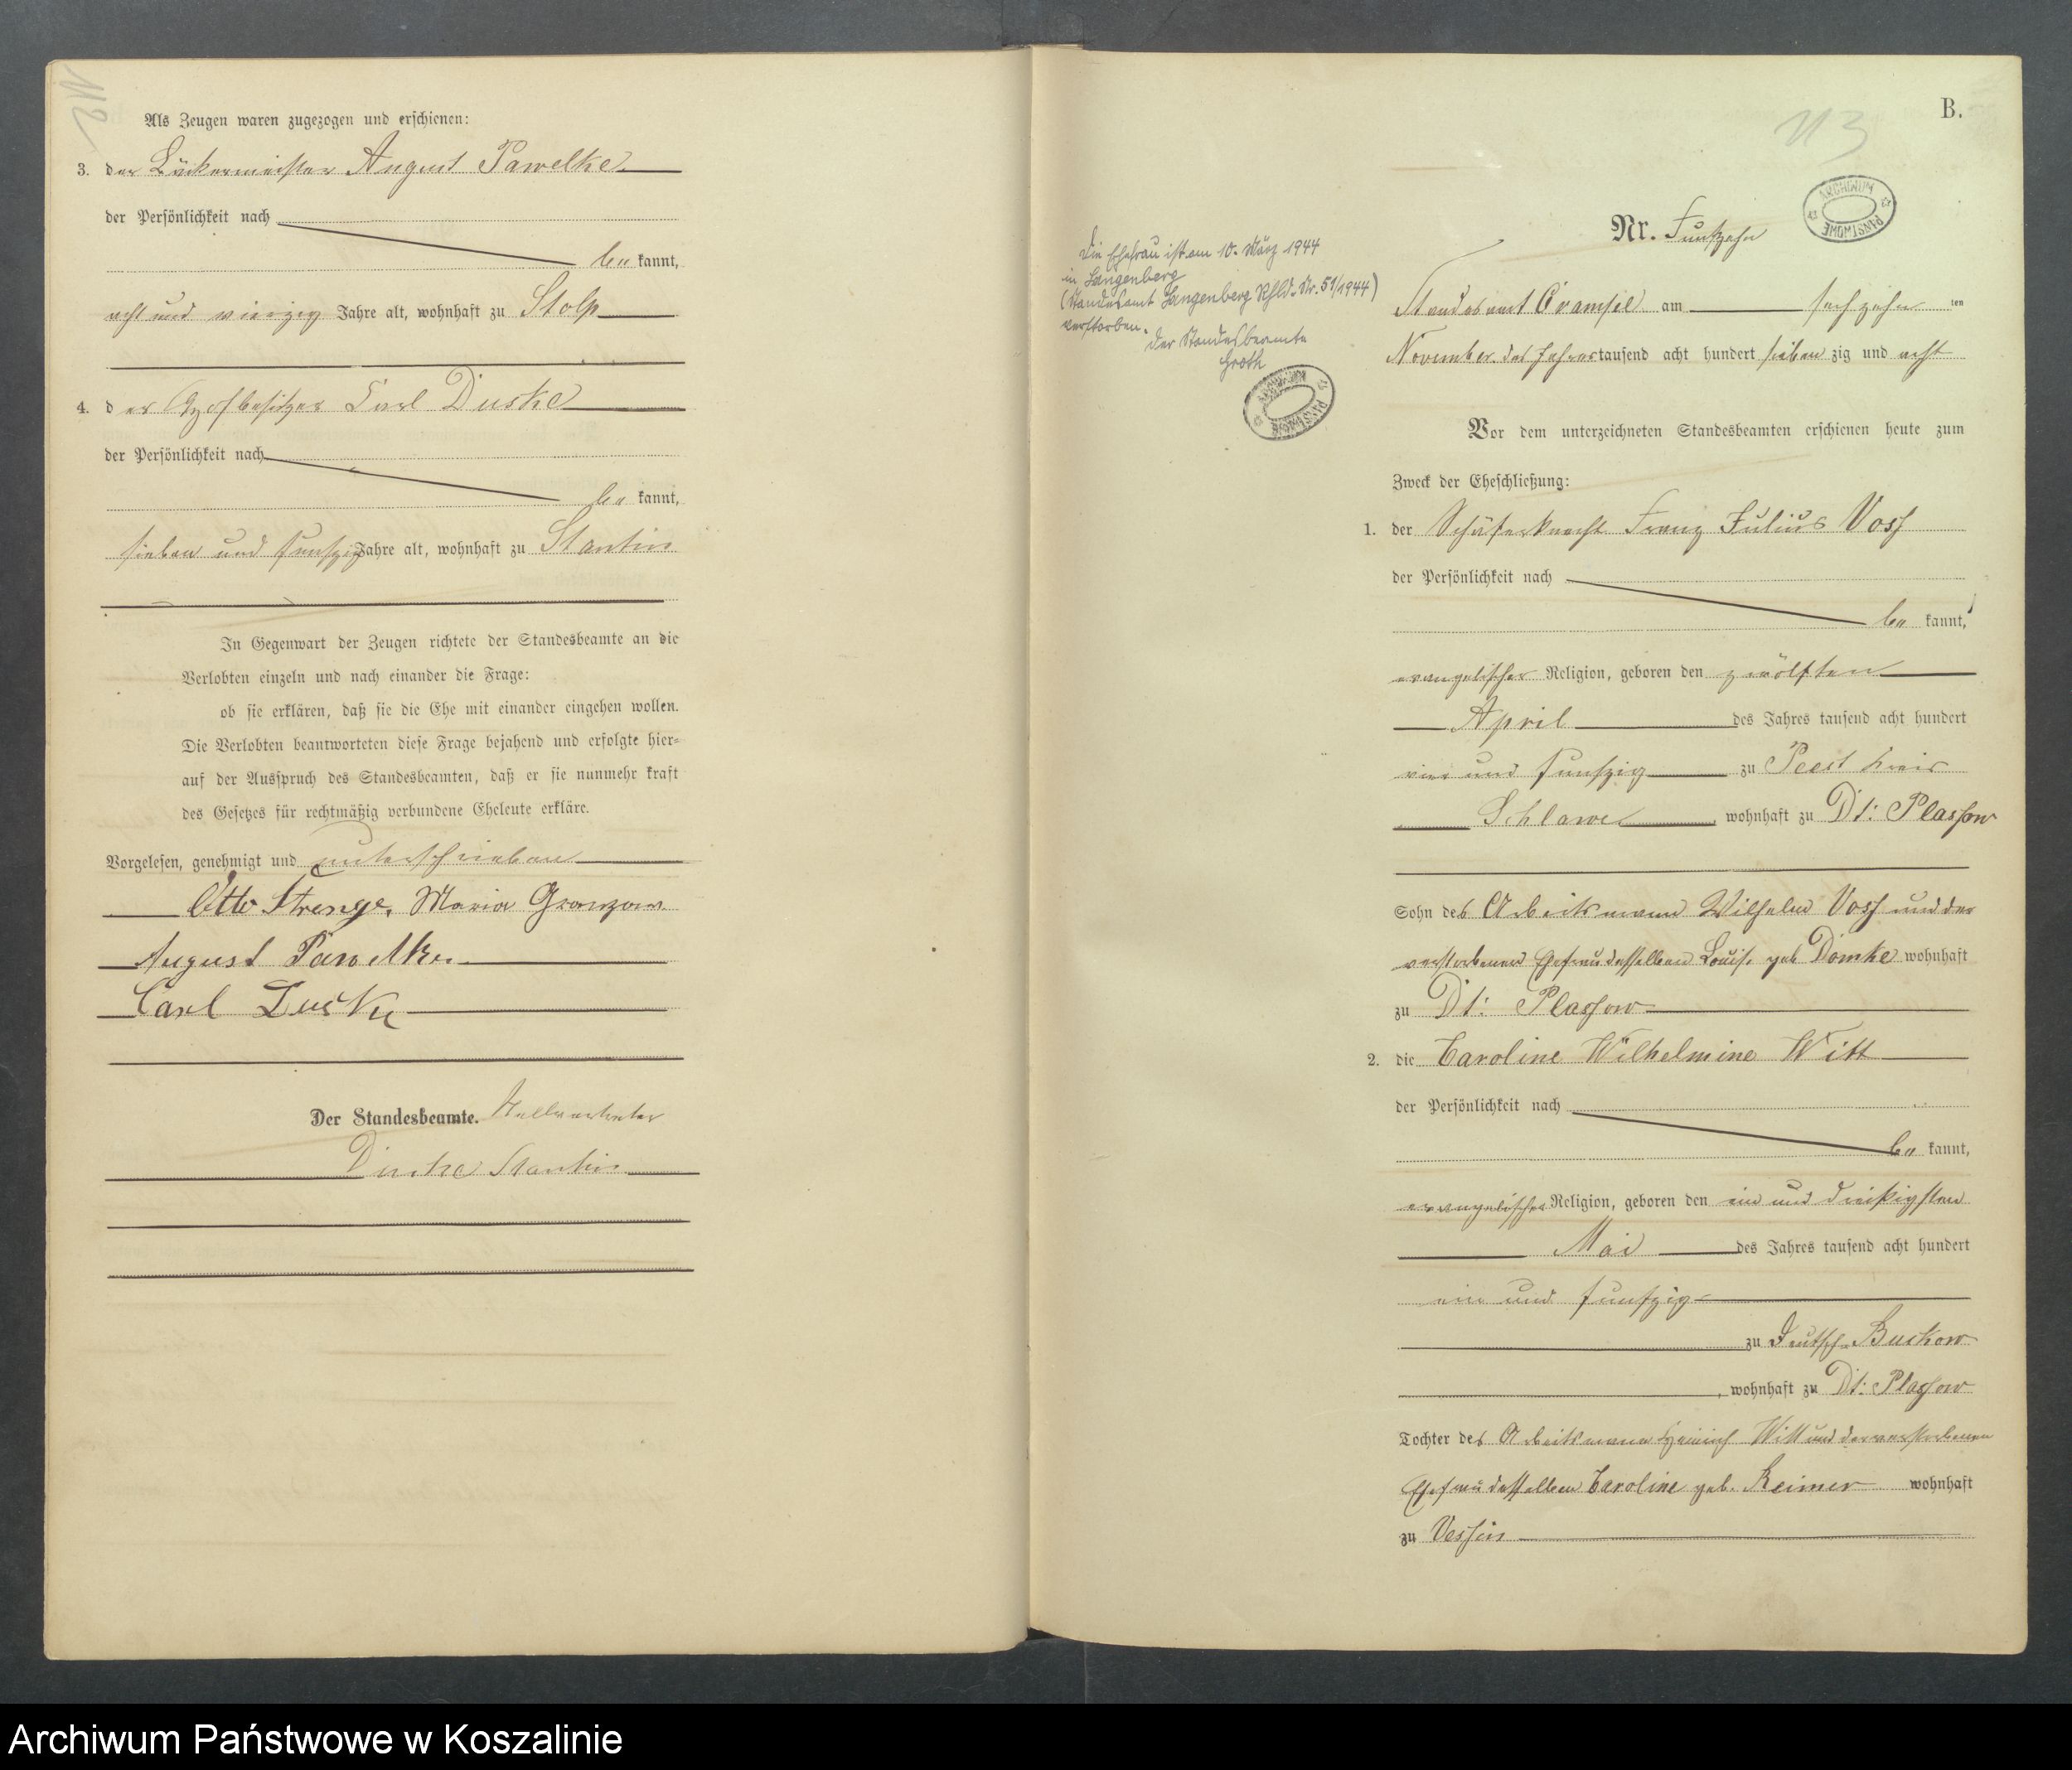 112
Als Zeugen waren zugezogen und erschienen:
3. der Bäckermeister August Pawelke
der Persönlichkeit nach
be kannt,
acht und vierzig Jahre alt, wohnhaft zu Stolp
4. der Hofbesitzer Carl Duske
der Persönlichkeit nach
be kannt,
sieben und funfzig Jahre alt, wohnhaft zu Stantin
In Gegenwart der Zeugen richtete der Standesbeamte an die
Verlobten einzeln und nach einander die Frage:
ob sie erklären, daß sie die Ehe mit einander eingehen wollen.
Die Verlobten beantworteten diese Frage bejahend und erfolgte hier-
auf der Ausspruch des Standesbeamten, daß er sie nunmehr kraft
des Gesetzes für rechtmäßig verbundene Eheleute erkläre.
Vorgelesen, genehmigt und unterschrieben
Otto Strenge. Maria Granzow
August Pawelke
Carl Duske
Der Standesbeamte. Stellvertreter
Stantin
B.
113
ARCHIWUM PAŃSTWOWE
Nr. Funfzehn
Die Ehefrau ist am 10. März 1944
in Langenberg
(Standesamt Langenberg Rhld. Nr. 51/1944)
verstorben.
Der Standesbeamte
Groth
ARCHIWUM PAŃSTWOWE
Standesamt Crampe am sechzehn ten
November des Jahres tausend acht hundert sieben zig und acht
Vor dem unterzeichneten Standesbeamten erschienen heute zum
Zweck der Eheschließung:
1. der Schäferknecht Franz Julius Voss
der Persönlichkeit nach
be kannt,
evangelischer Religion, geboren den zwölften
April des Jahres tausend acht hundert
vier und funfzig zu Peest Kreis
Schlawe, wohnhaft zu Dt: Plassow
Sohn des Arbeitsmann Wilhelm Voss und der
verstorbenen Ehefrau desselben Louise geb Domke wohnhaft
zu Dt: Plassow
2. die Caroline Wilhelmine Witt
der Persönlichkeit nach
be kannt,
evangelischer Religion, geboren den ein und dreißigsten
Mai des Jahres tausend acht hundert
ein und funfzig
zu Deutsch Buckow
, wohnhaft zu Dt: Plassow
Tochter des Arbeitsmann Heinrich Witt und der verstorbenen
Ehefrau desselben Caroline geb. Reimer wohnhaft
zu Vessin
Archiwum Państwowe w Koszalinie